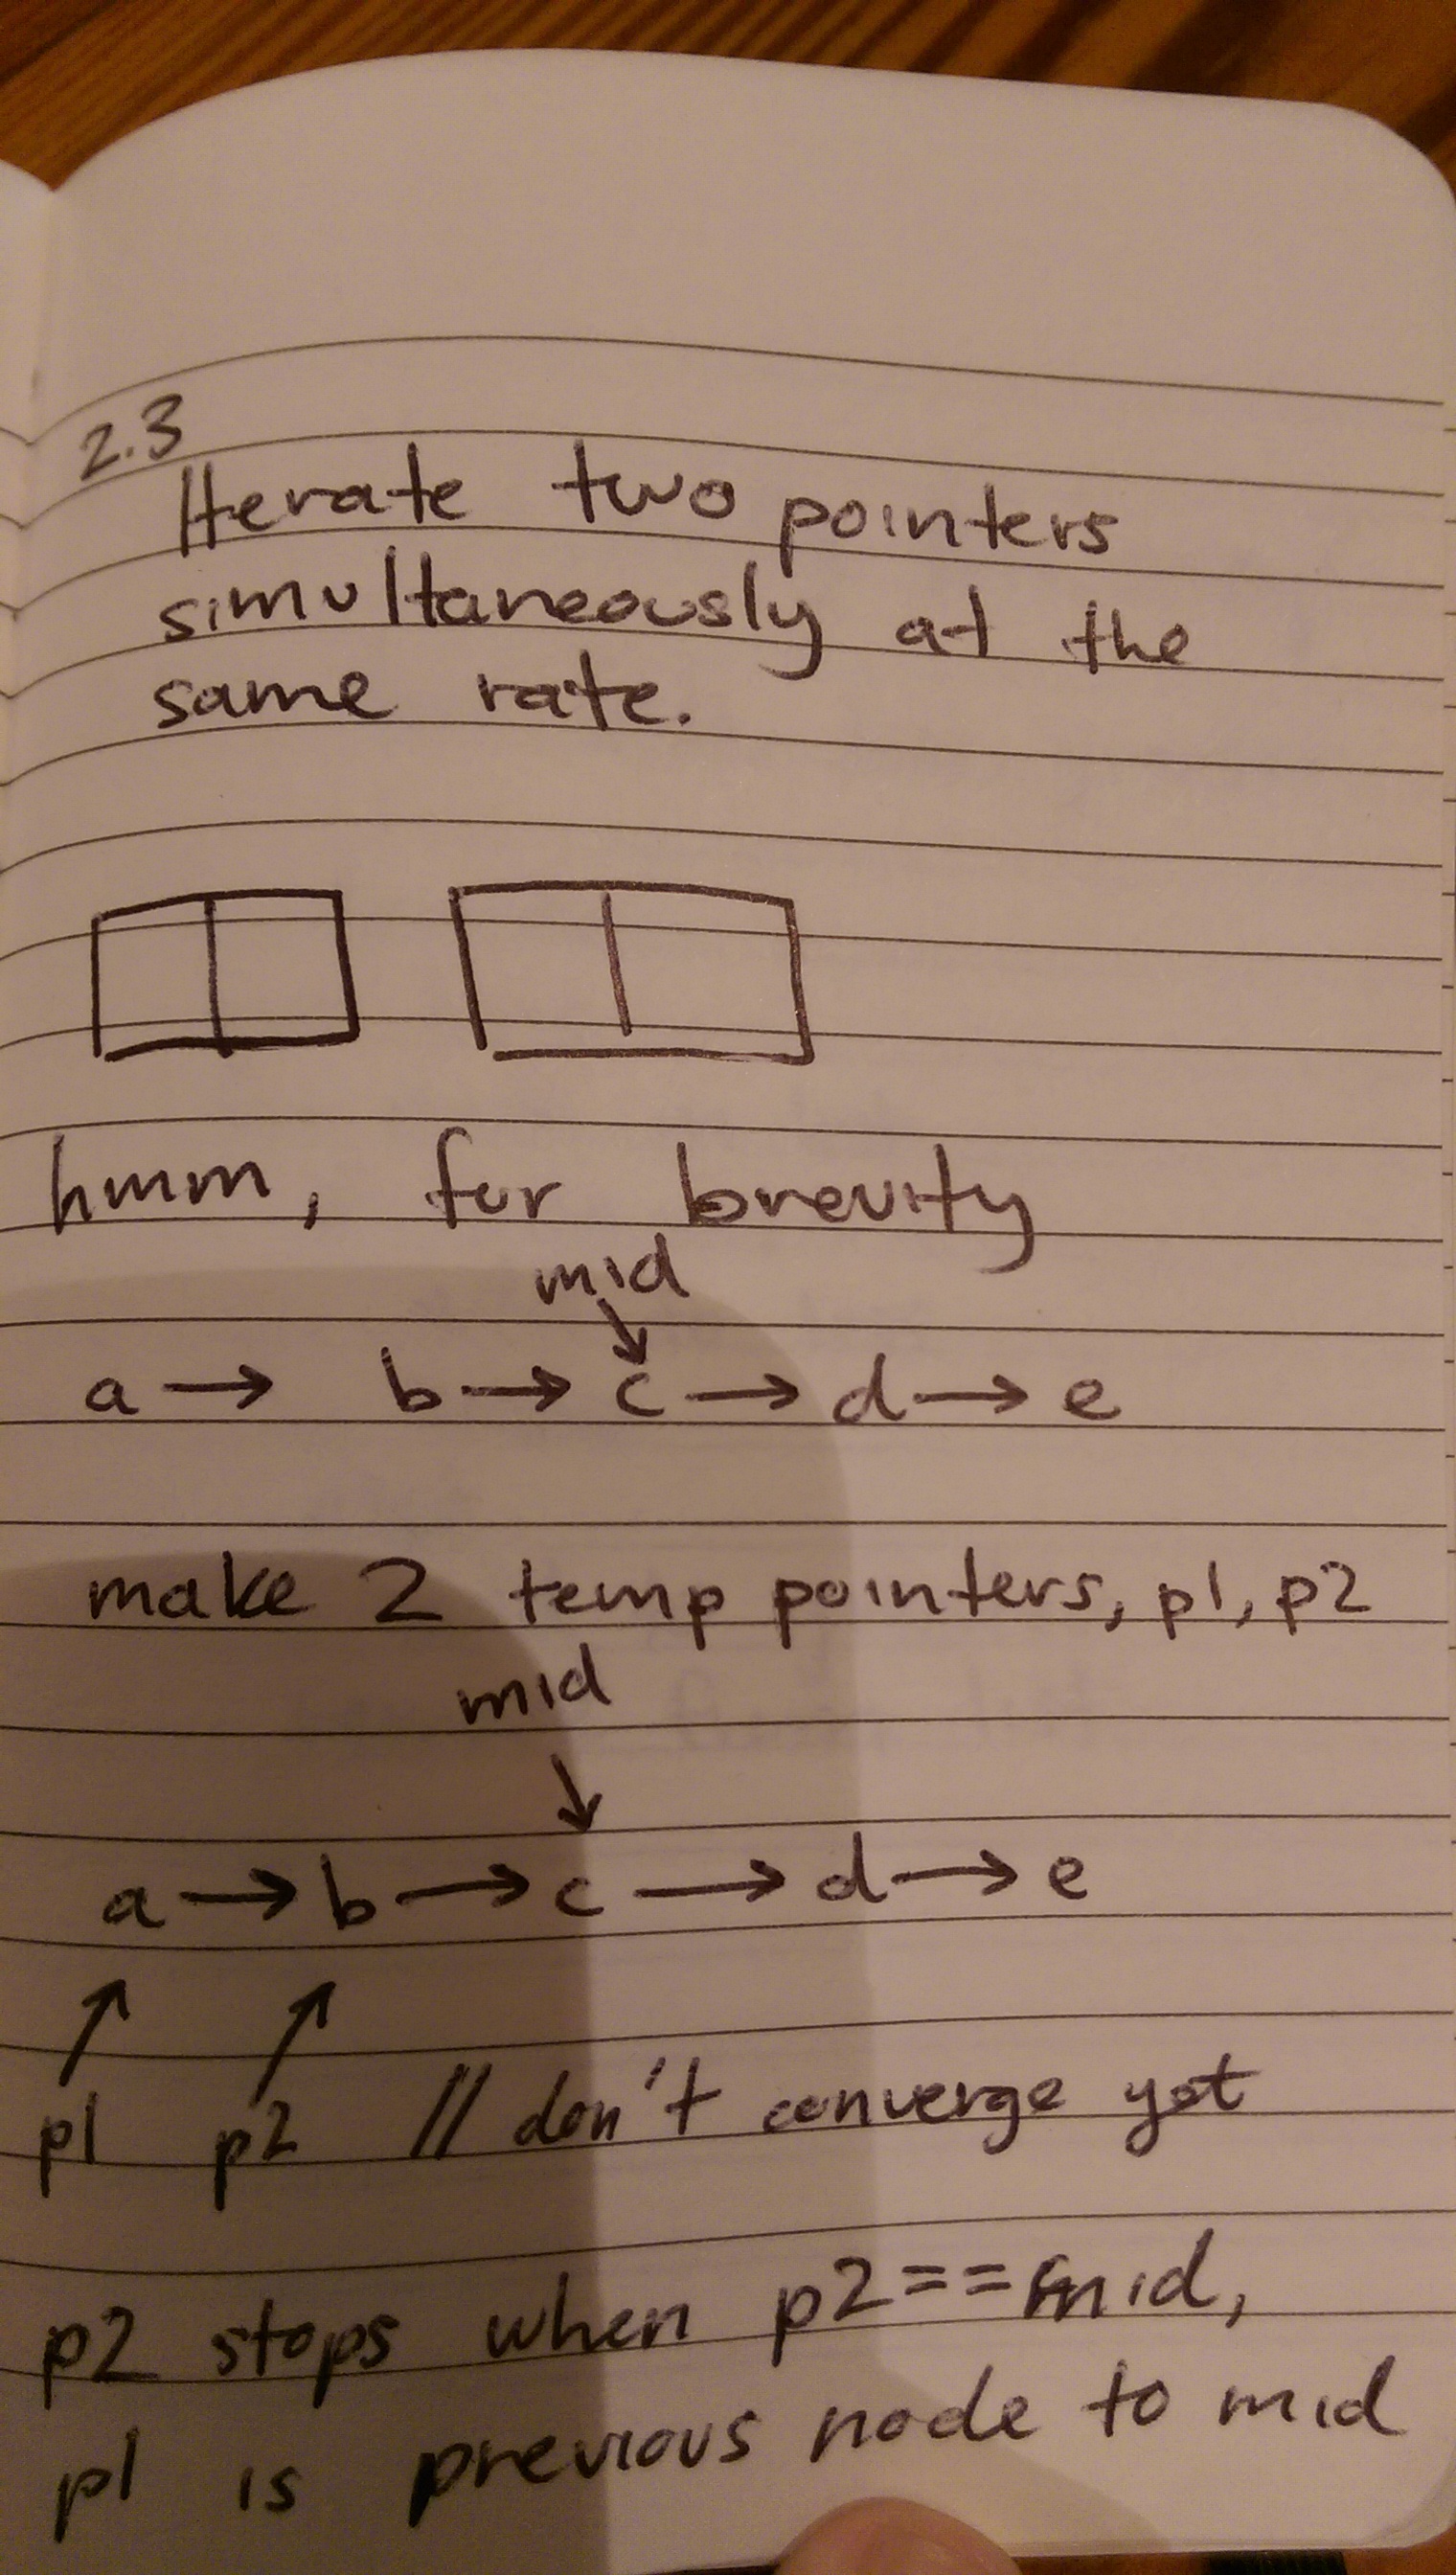 2.3
Iterate two pointers
simultaneously at the
same rate.
hmm, for brevity
mid
↓
a → b → c → d → e
make 2 temp pointers, p1, p2
mid
↓
a → b → c → d → e
↗ ↗
p1 p2 // don't converge yet
p2 stops when p2==mid,
p1 is previous node to mid